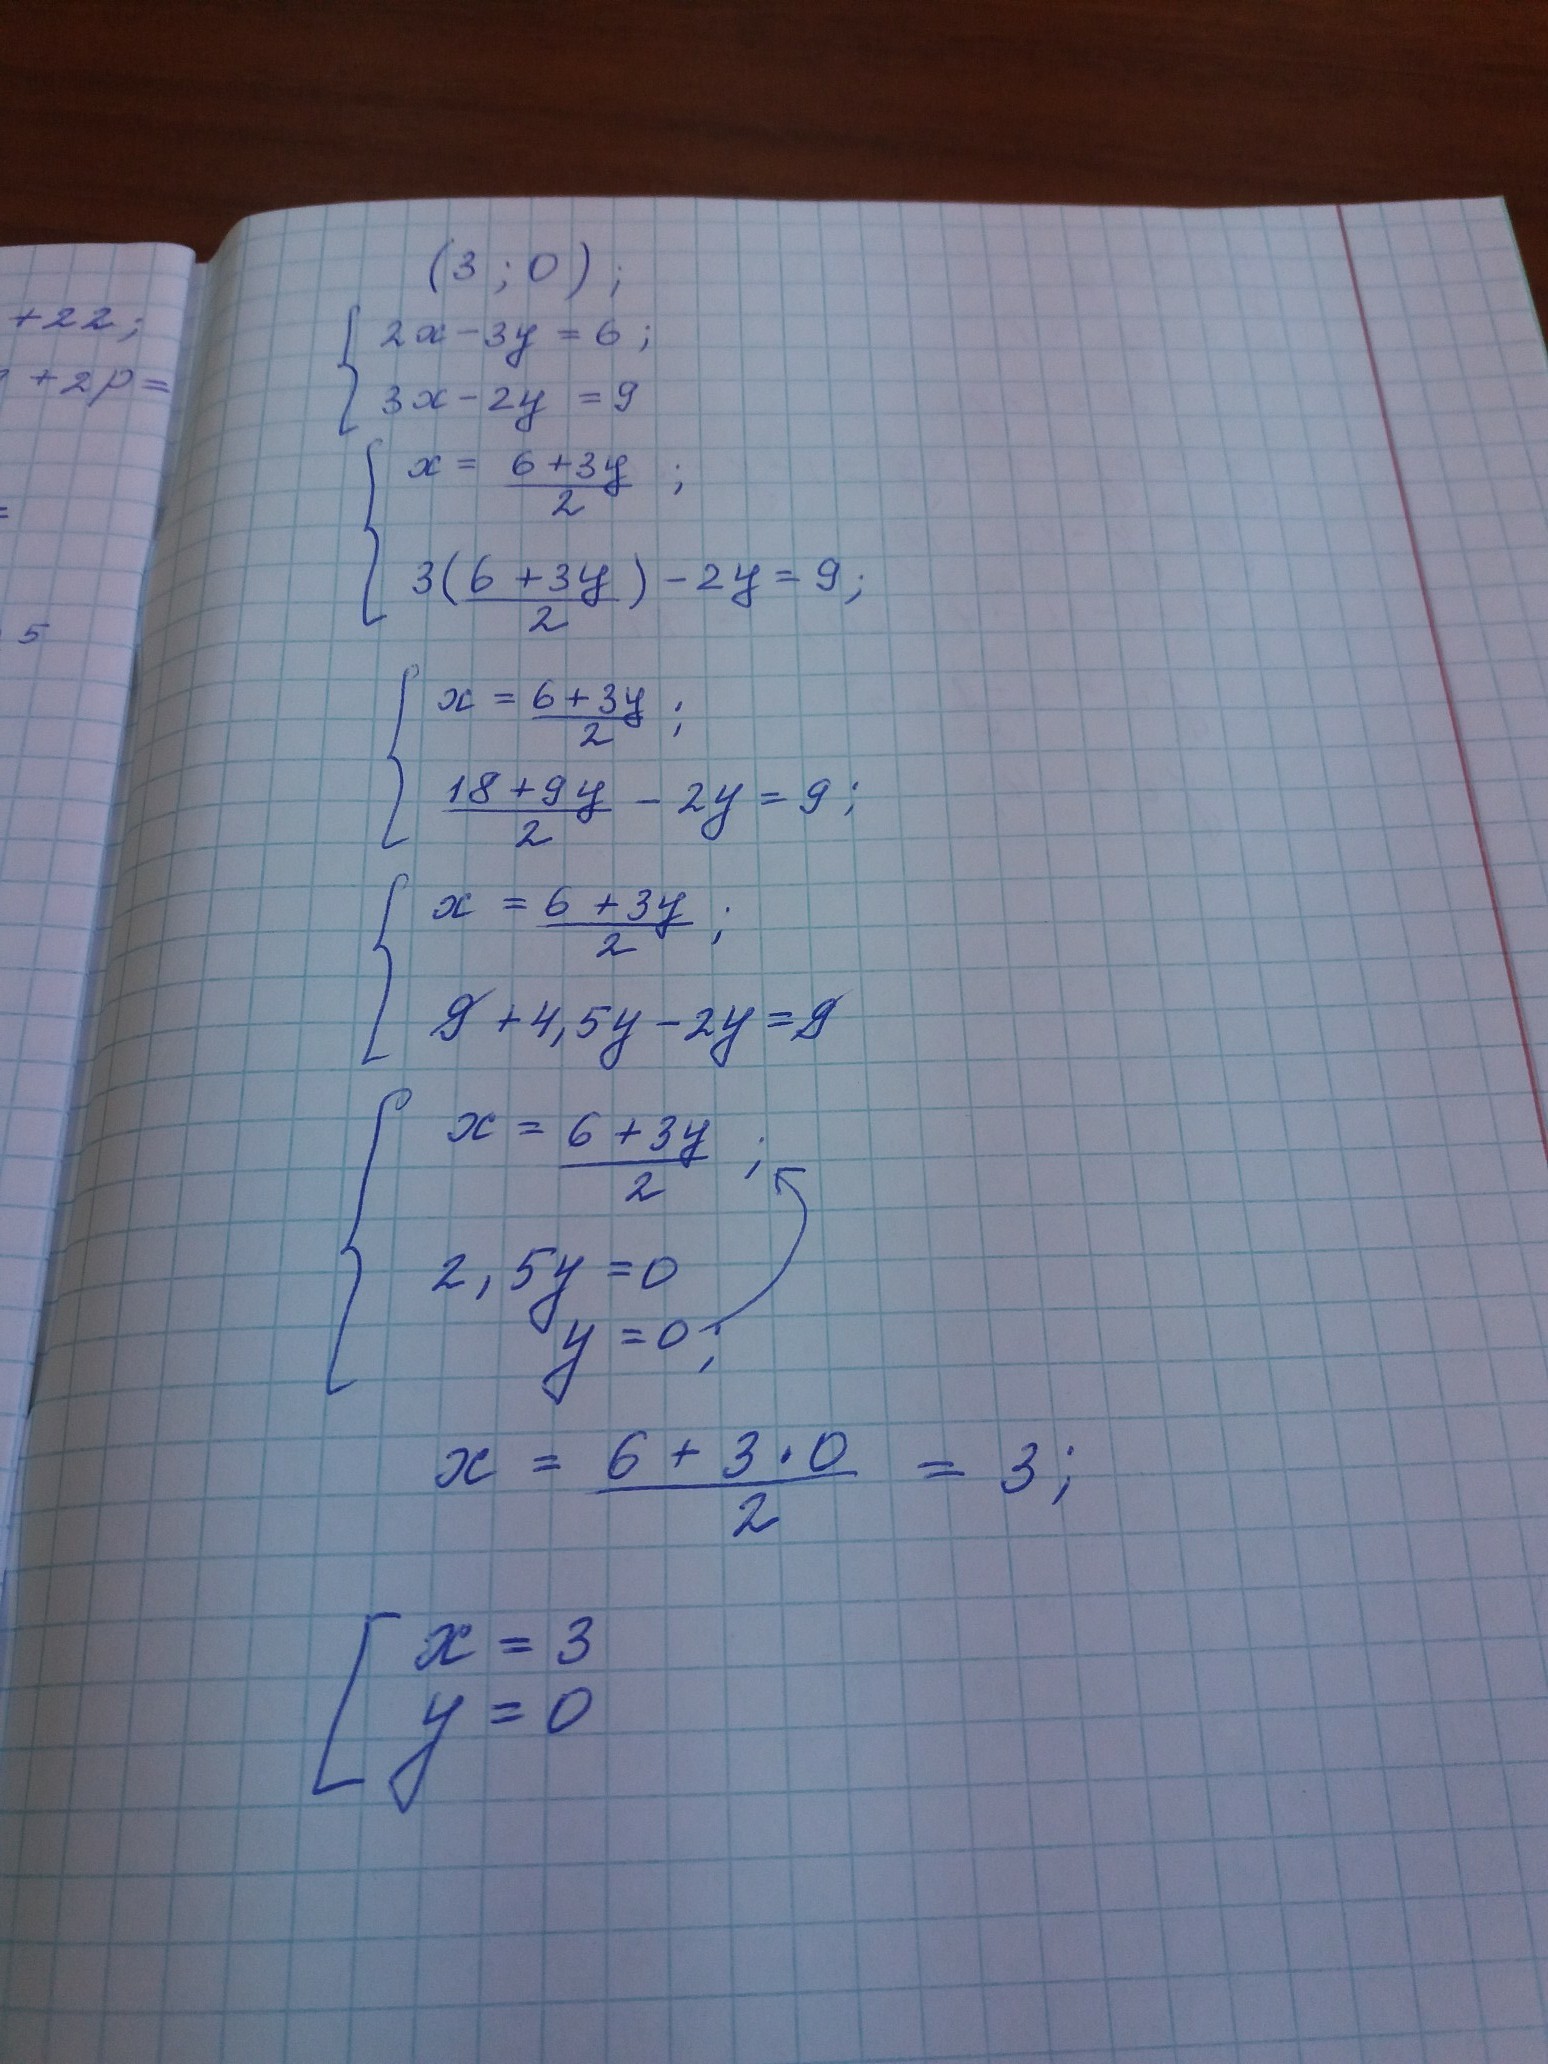 +22;
+2p=
=
5
(3;0);
2x-3y=6;
3x-2y=9
x = 6+3y/2;
3(6+3y/2)-2y=9;
x = 6+3y/2;
18+9y/2 - 2y = 9;
x = 6+3y/2;
9+4,5y-2y=9
x = 6+3y/2;
2,5y=0
y=0;
x = 6+3·0/2 = 3;
x = 3
y = 0